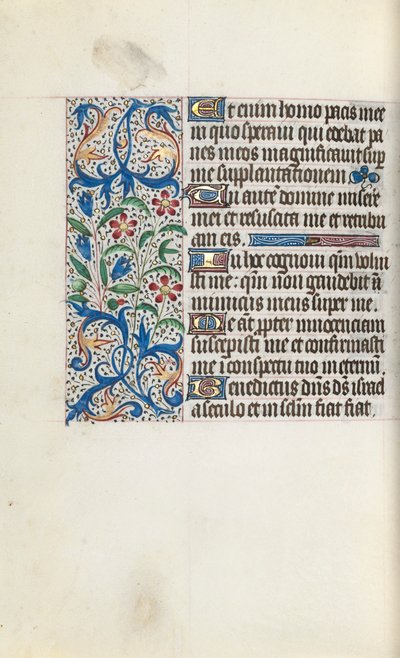 Et enim homo pacis mee
in quo speraui qui edebat pa
nes meos magnificauit sup
me supplantationem
Tu autē domine misere
mei et resuscita me et retribu
am eis.
In hoc cognoui qm̄ volui
sti me: qm̄ non gaudebit in̄
inimicus meus super me.
Me aūt ꝓpter innocenciam
suscepisti me et confirmasti
me i conspectu tuo in eternū.
Benedictus dn̄s ds̄ israel
a seculo et in sclm̄ fiat fiat.